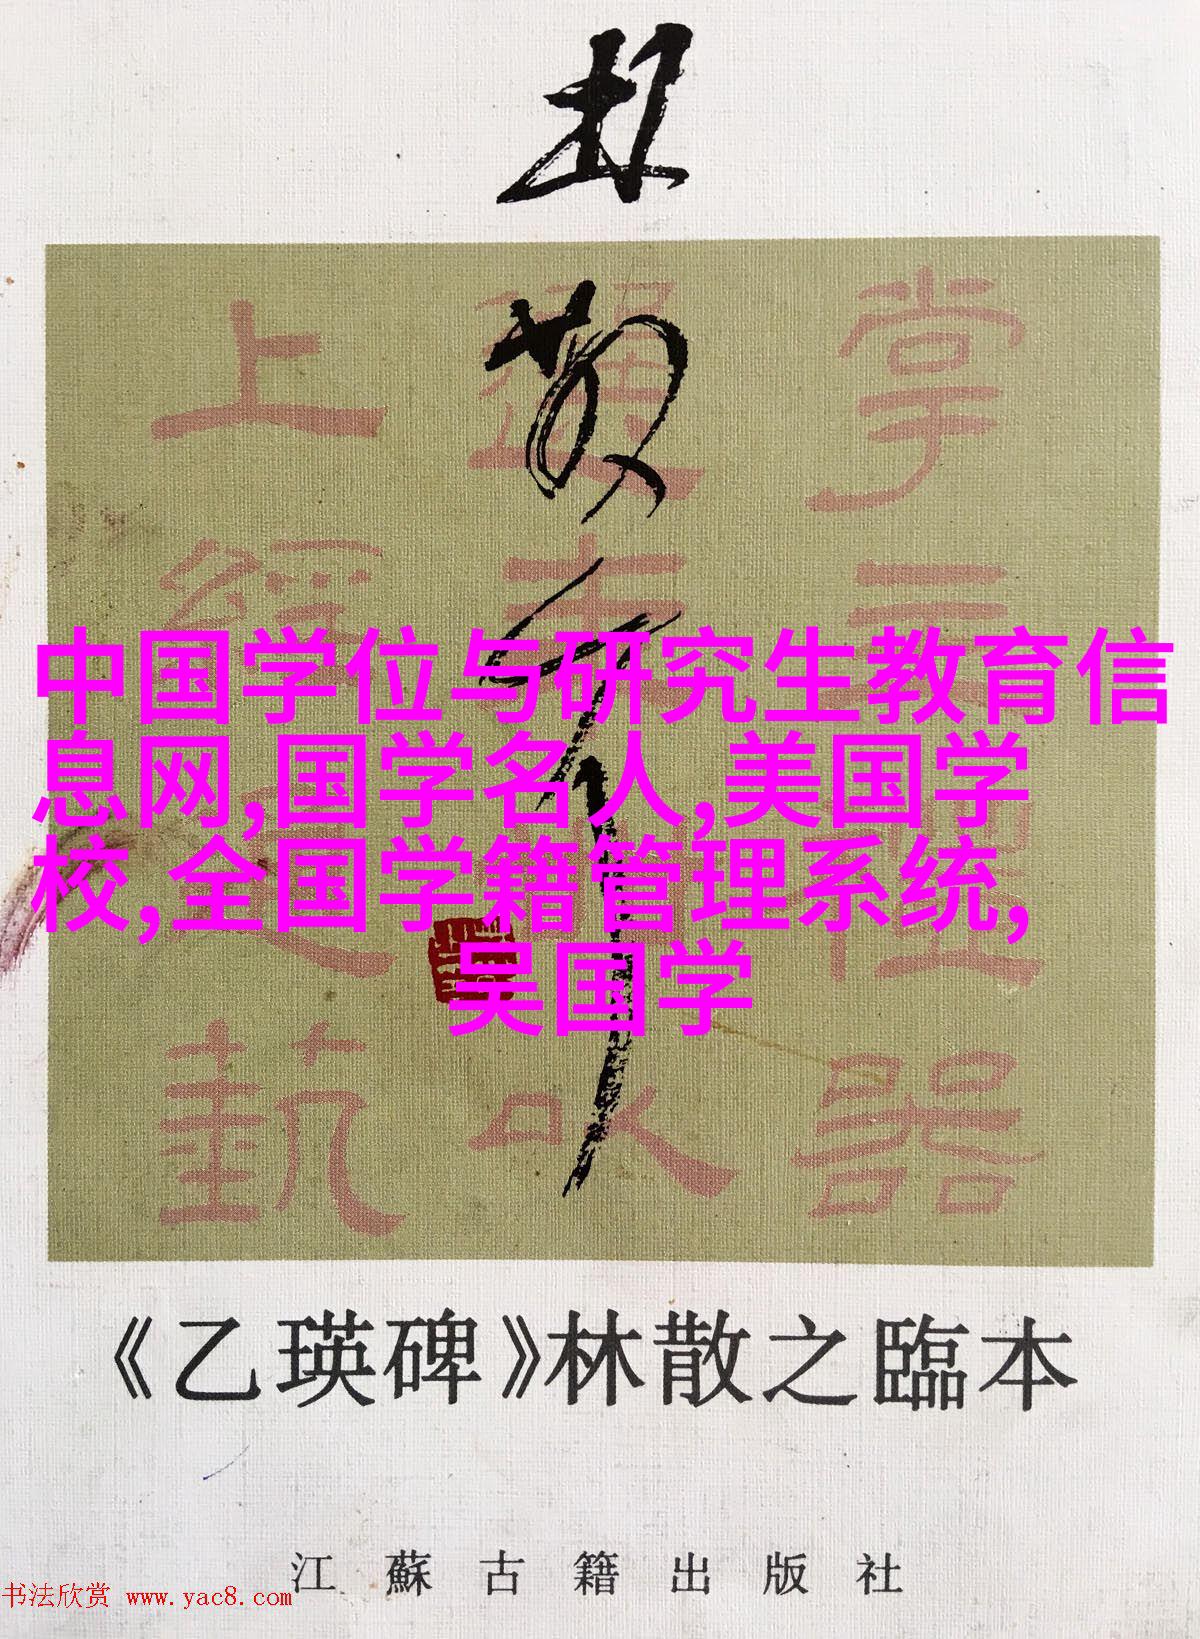 林
散
之
掌 三
上 經
藝
器
中国学位与研究生教育信
息网,国学名人,美国学
校,全国学籍管理系统,
吴国学
《乙瑛碑》林散之臨本
江蘇古籍出版社
书法欣赏 www.yac8.com